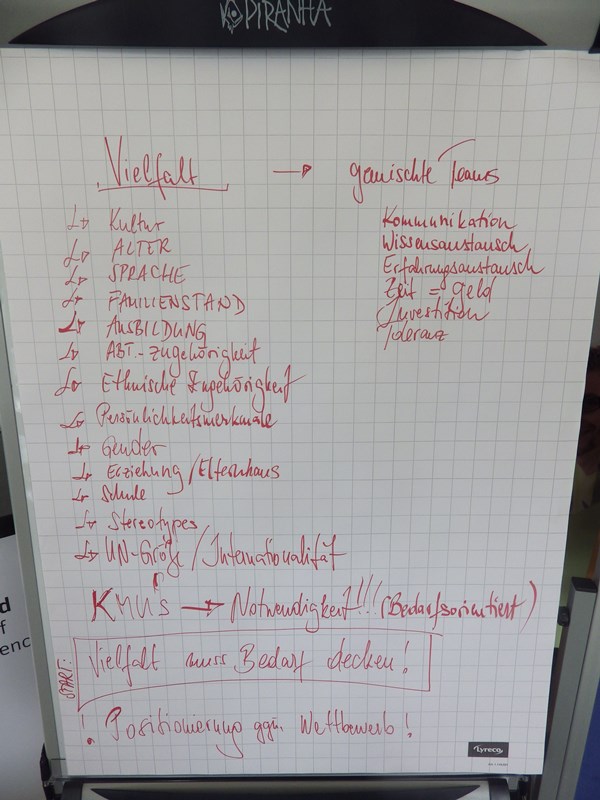 PIRANHA
Vielfalt → gemischte Teams
↳ Kultur
↳ ALTER
↳ SPRACHE
↳ FAMILIENSTAND
↳ AUSBILDUNG
↳ ABT.-zugehörigkeit
↳ Ethnische Zugehörigkeit
↳ Persönlichkeitsmerkmale
↳ Gender
↳ Erziehung/Elternhaus
↳ Schule
↳ Stereotypes
↳ UN-Größe/Internationalität
Kommunikation
Wissensaustausch
Erfahrungsaustausch
Zeit = Geld
Investition
Toleranz
KMUs → Notwendigkeit!!! (Bedarfsorientiert)
START:
Vielfalt muss Bedarf decken!
! Positionierung ggü. Wettbewerb!
Lyreco
d
f
enc